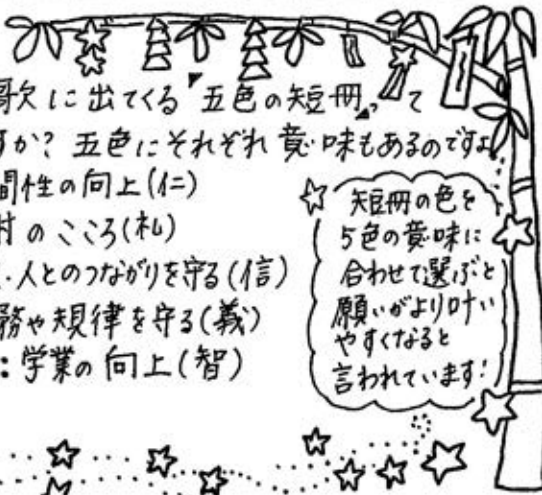 歌に出てくる『五色の短冊』って
すか? 五色にそれぞれ意味もあるのですよ
間性の向上(仁)
謝のこころ(礼)
人とのつながりを守る(信)
務や規律を守る(義)
:学業の向上(智)
短冊の色を
5色の意味に
合わせて選ぶと
願いがより叶い
やすくなると
言われています!